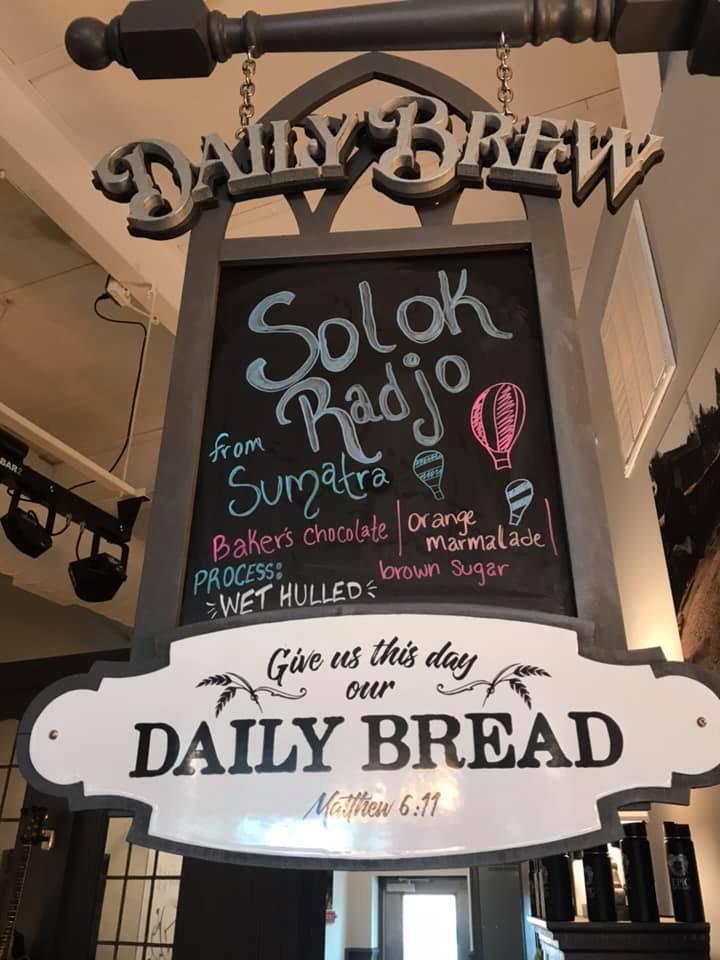 DAILY BREW
Solok
Radjo
from
Sumatra
Baker's chocolate | orange marmalade |
brown sugar
PROCESS:
WET HULLED
Give us this day
our
DAILY BREAD
Matthew 6:11
BAR2
EPIC